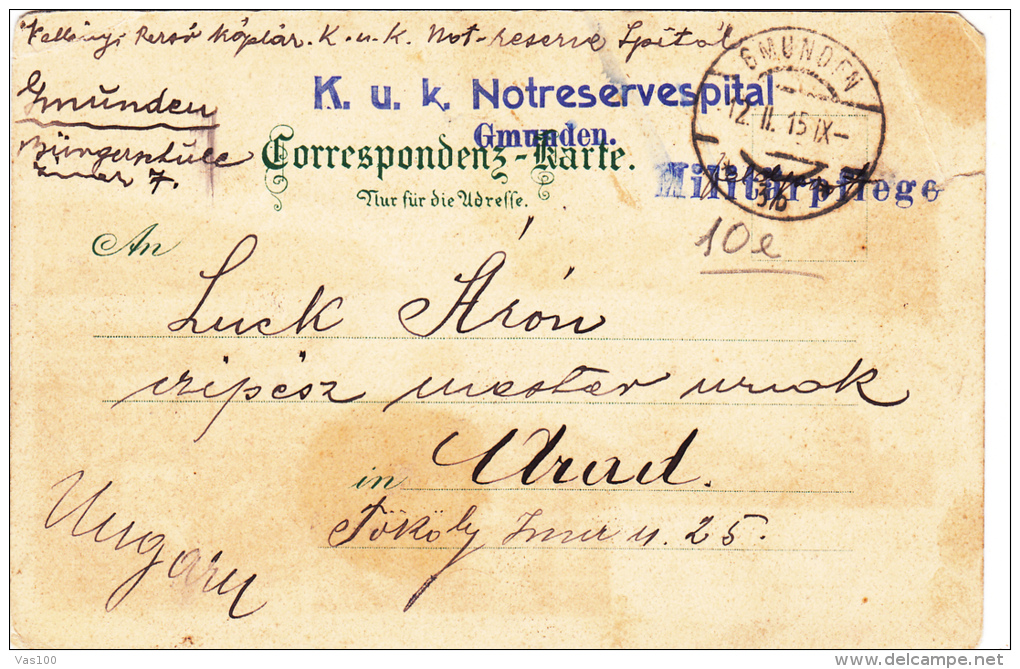 káplár. K. u. K. Not-reserve Spital
Gmunden
Bürgerschule
Zimmer 7.
K. u. k. Notreservespital
Gmunden.
GMUNDEN
12. II. 15 IX-
Correspondenz-Karte.
Nur für die Adresse.
Militärpflege
10e
An
Luck Áron
czipész mester urnak
in Arad.
Tököly Imre u. 25.
Ungarn
Vas100
delcampe.net